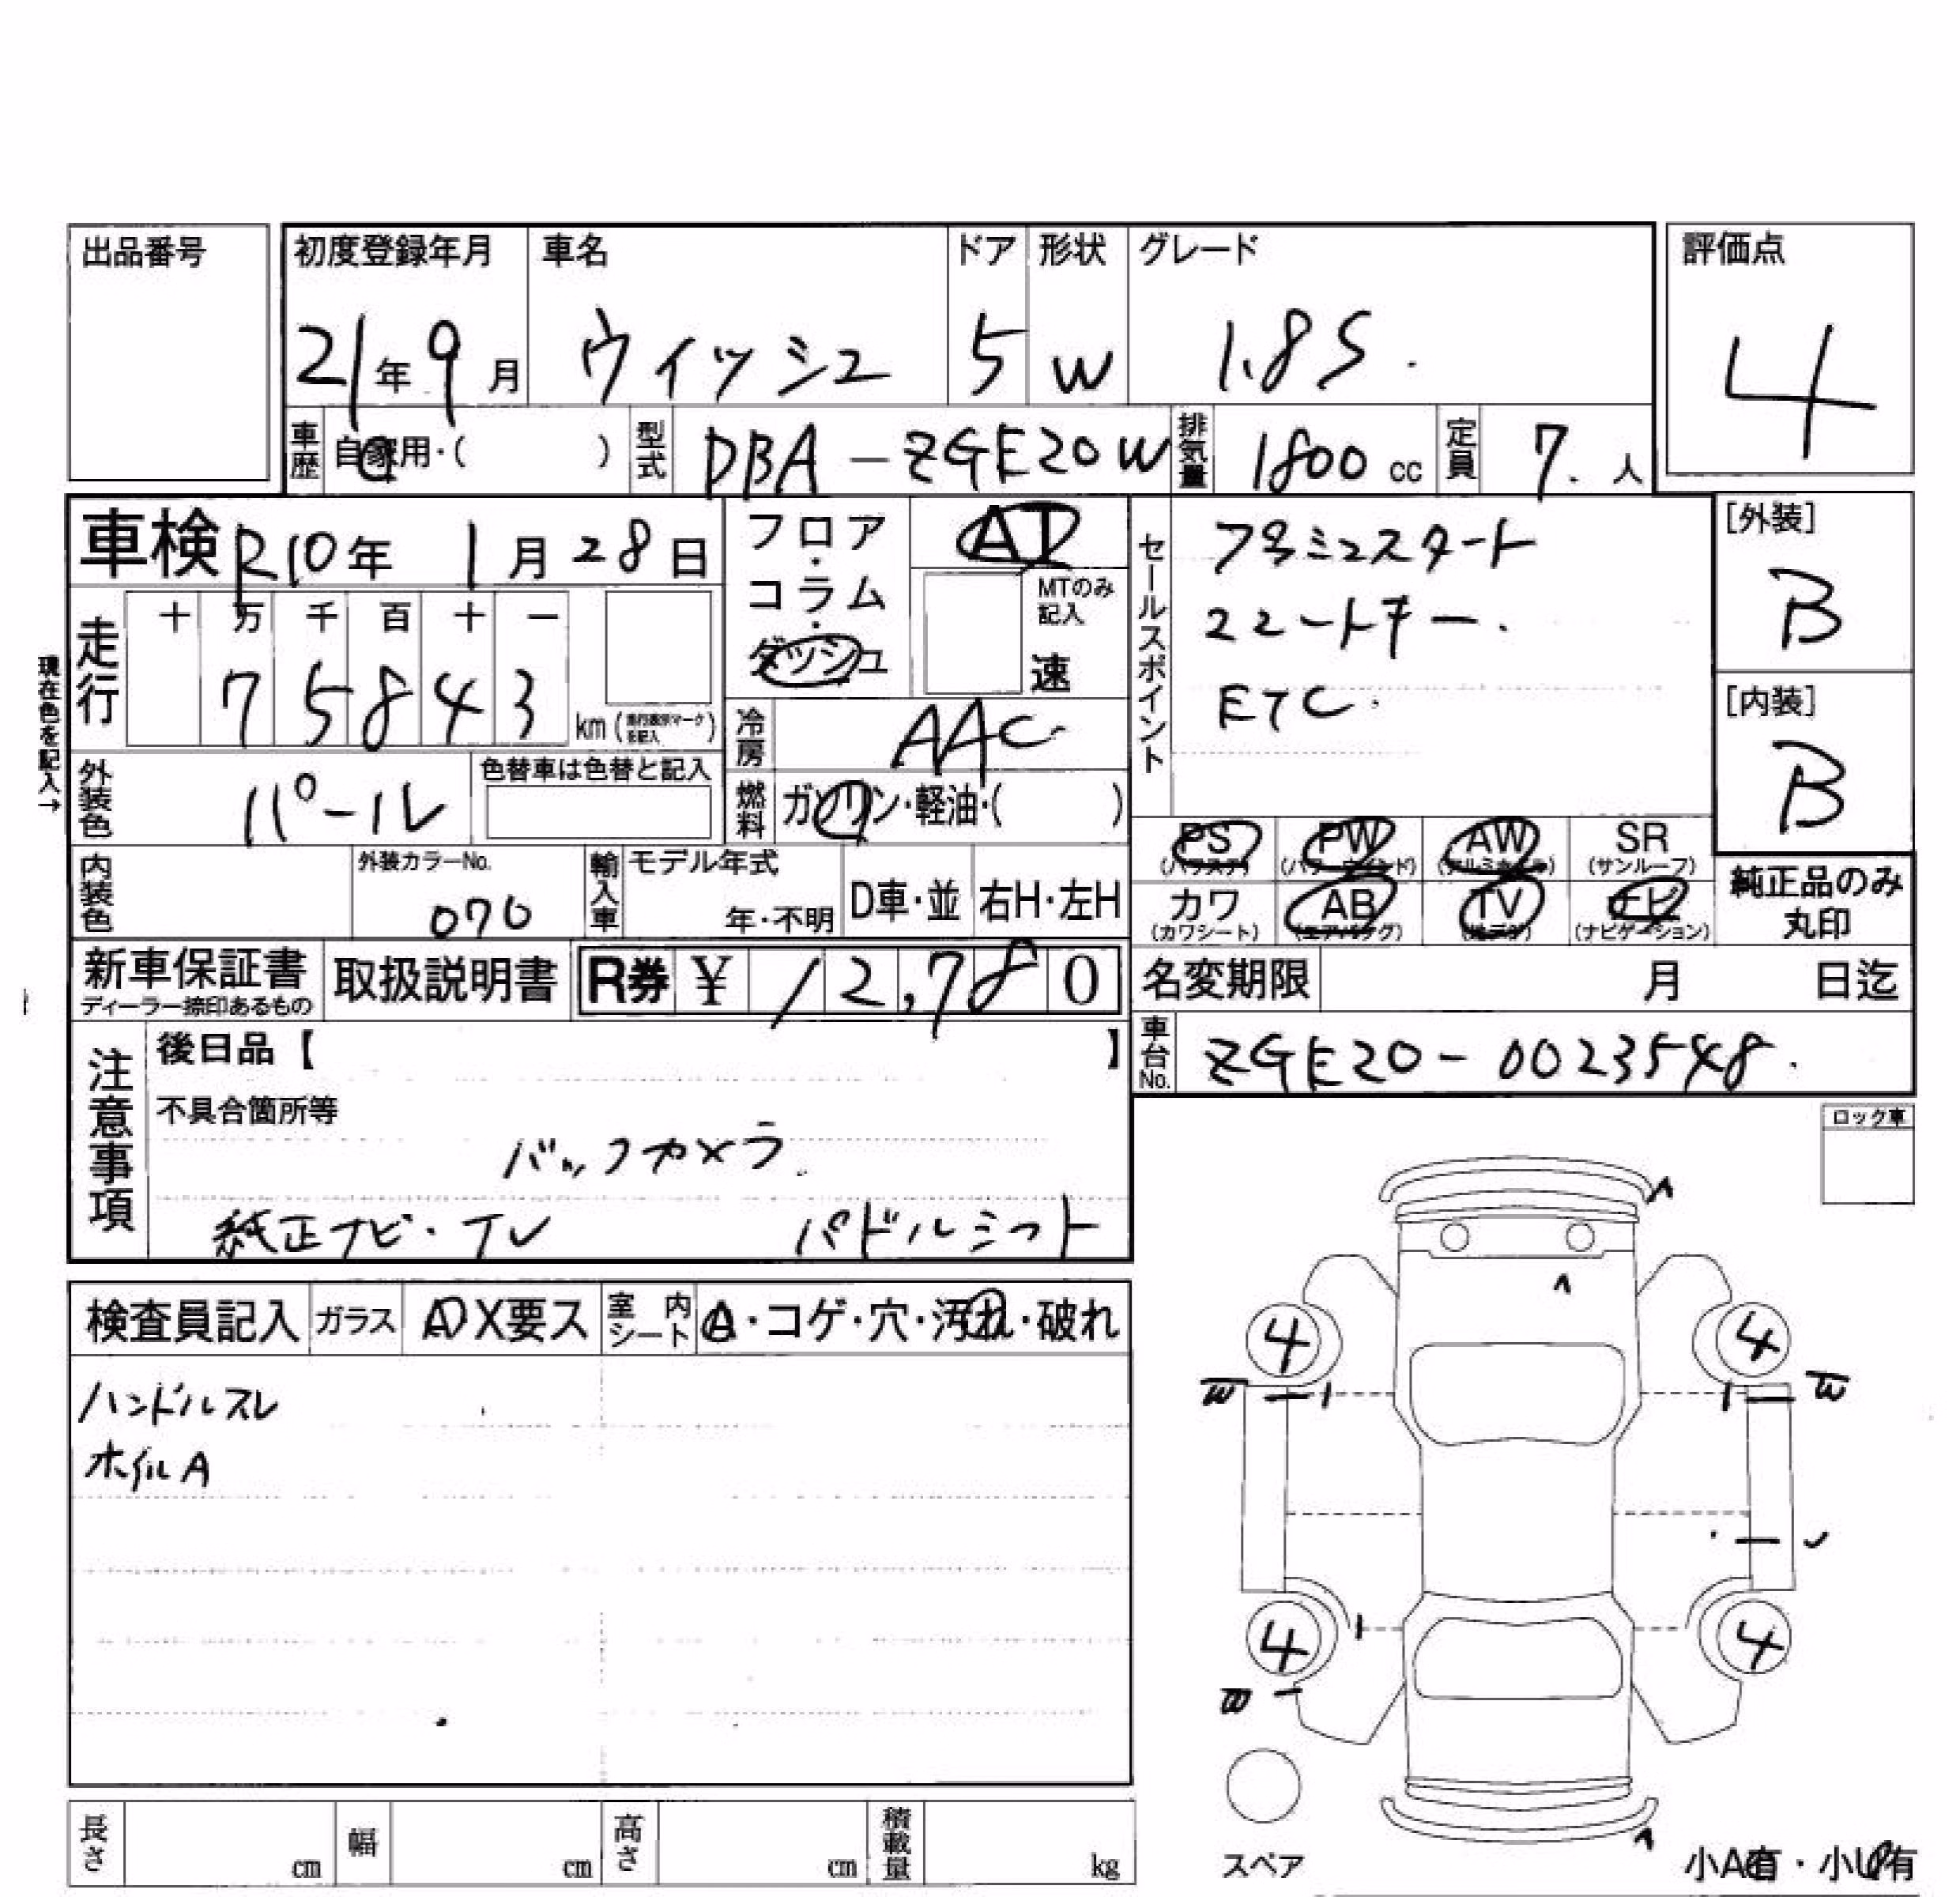 出品番号
初度登録年月 車名 ドア 形状 グレード 評価点
21年 9月 ウィッシュ 5 W 1.8S. 4
車歴 自家用・( ) 型式 DBA-ZGE20W 排気量 1800 cc 定員 7. 人
車検 R10年 1月 28日
フロア・コラム・ダッシュ
AT
MTのみ記入
速
セールスポイント
プッシュスタート
スマートキー.
ETC.
[外装]
B
[内装]
B
現在色を記入→
走行 十 万 千 百 十 一
75843 km (走行選別マークを記入)
冷房 AAC
外装色 パール 色替車は色替と記入
燃料 ガソリン・軽油・( )
PS PW AW SR
(パワステ) (パワーウインド) (アルミホイール) (サンルーフ)
カワ AB TV ナビ
(カワシート) (エアバッグ) (地デジ) (ナビゲーション)
純正品のみ
丸印
内装色 外装カラーNo. 070 輸入車 モデル年式 年・不明 D車・並 右H・左H
新車保証書 取扱説明書 R券 ¥ 12,780
ディーラー捺印あるもの
名変期限 月 日迄
車台No. ZGE20-0023548.
注意事項
後日品【 】
不具合箇所等
バックカメラ.
純正ナビ・TV パドルシフト
ロック車
検査員記入 ガラス A X要ス 室内シート A・コゲ・穴・汚れ・破れ
ハンドルスレ
ホイルA
A
A
4 4
W W
4 4
W
A
スペア
小A有・小U有
長さ cm 幅 cm 高さ cm 積載量 kg